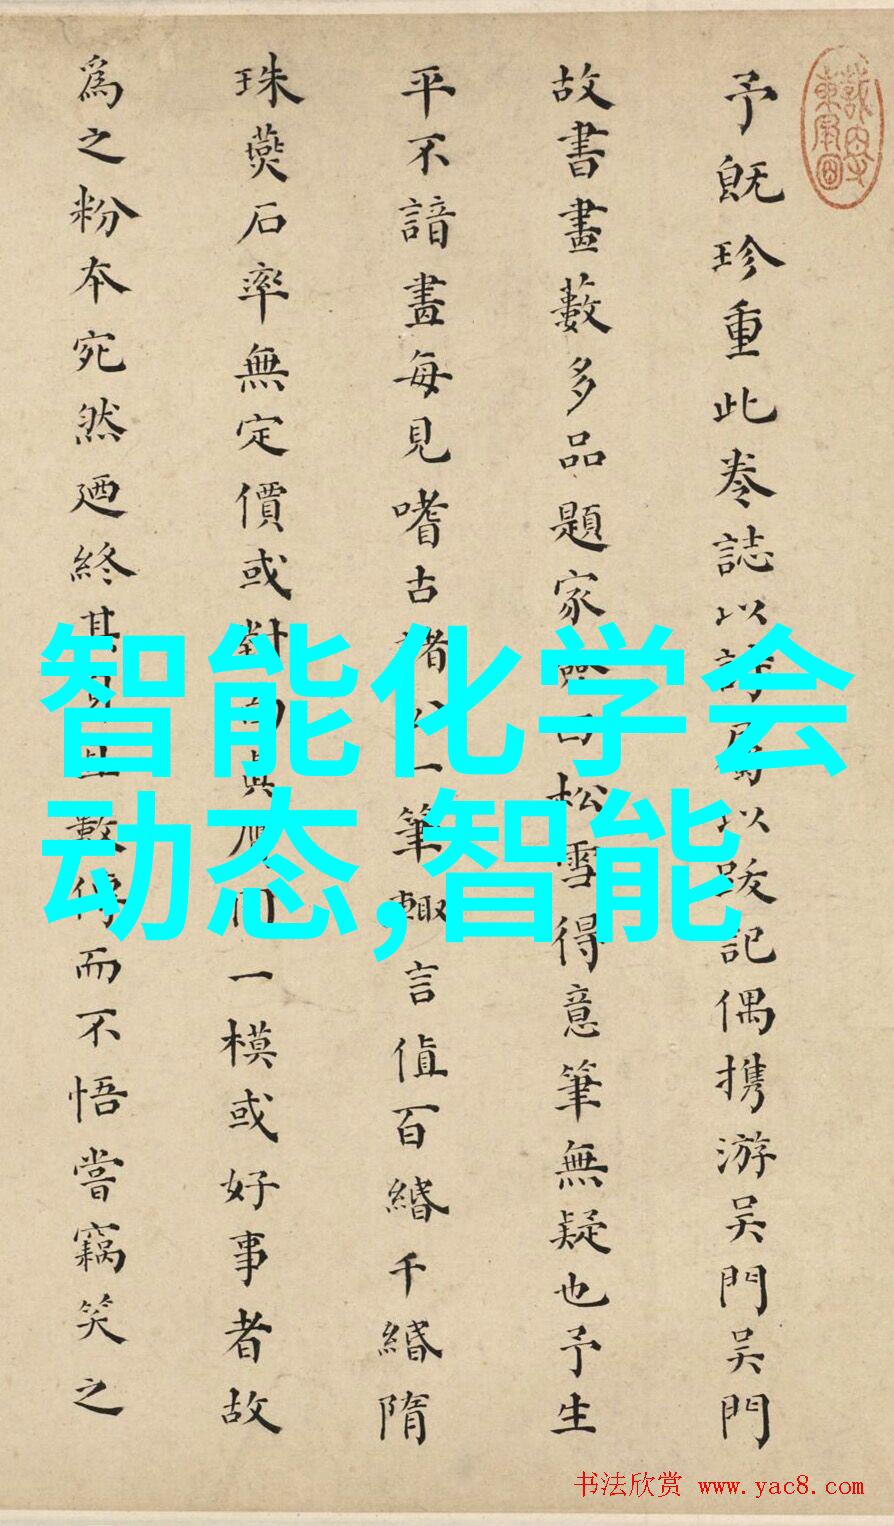 予既珍重此卷誌以詩屬以跋記偶攜游吳門吳門
故書畫藪多品題家僉曰松雪得意筆無疑也予生
平不諳畫每見嗜古諸公一筆輙言值百緡千緡隋
珠燕石率無定價或對面真贗同一模或好事者故
為之粉本宛然迺終其身數傳而不悟嘗竊笑之
智能化学会
动态,智能
书法欣赏 www.yac8.com